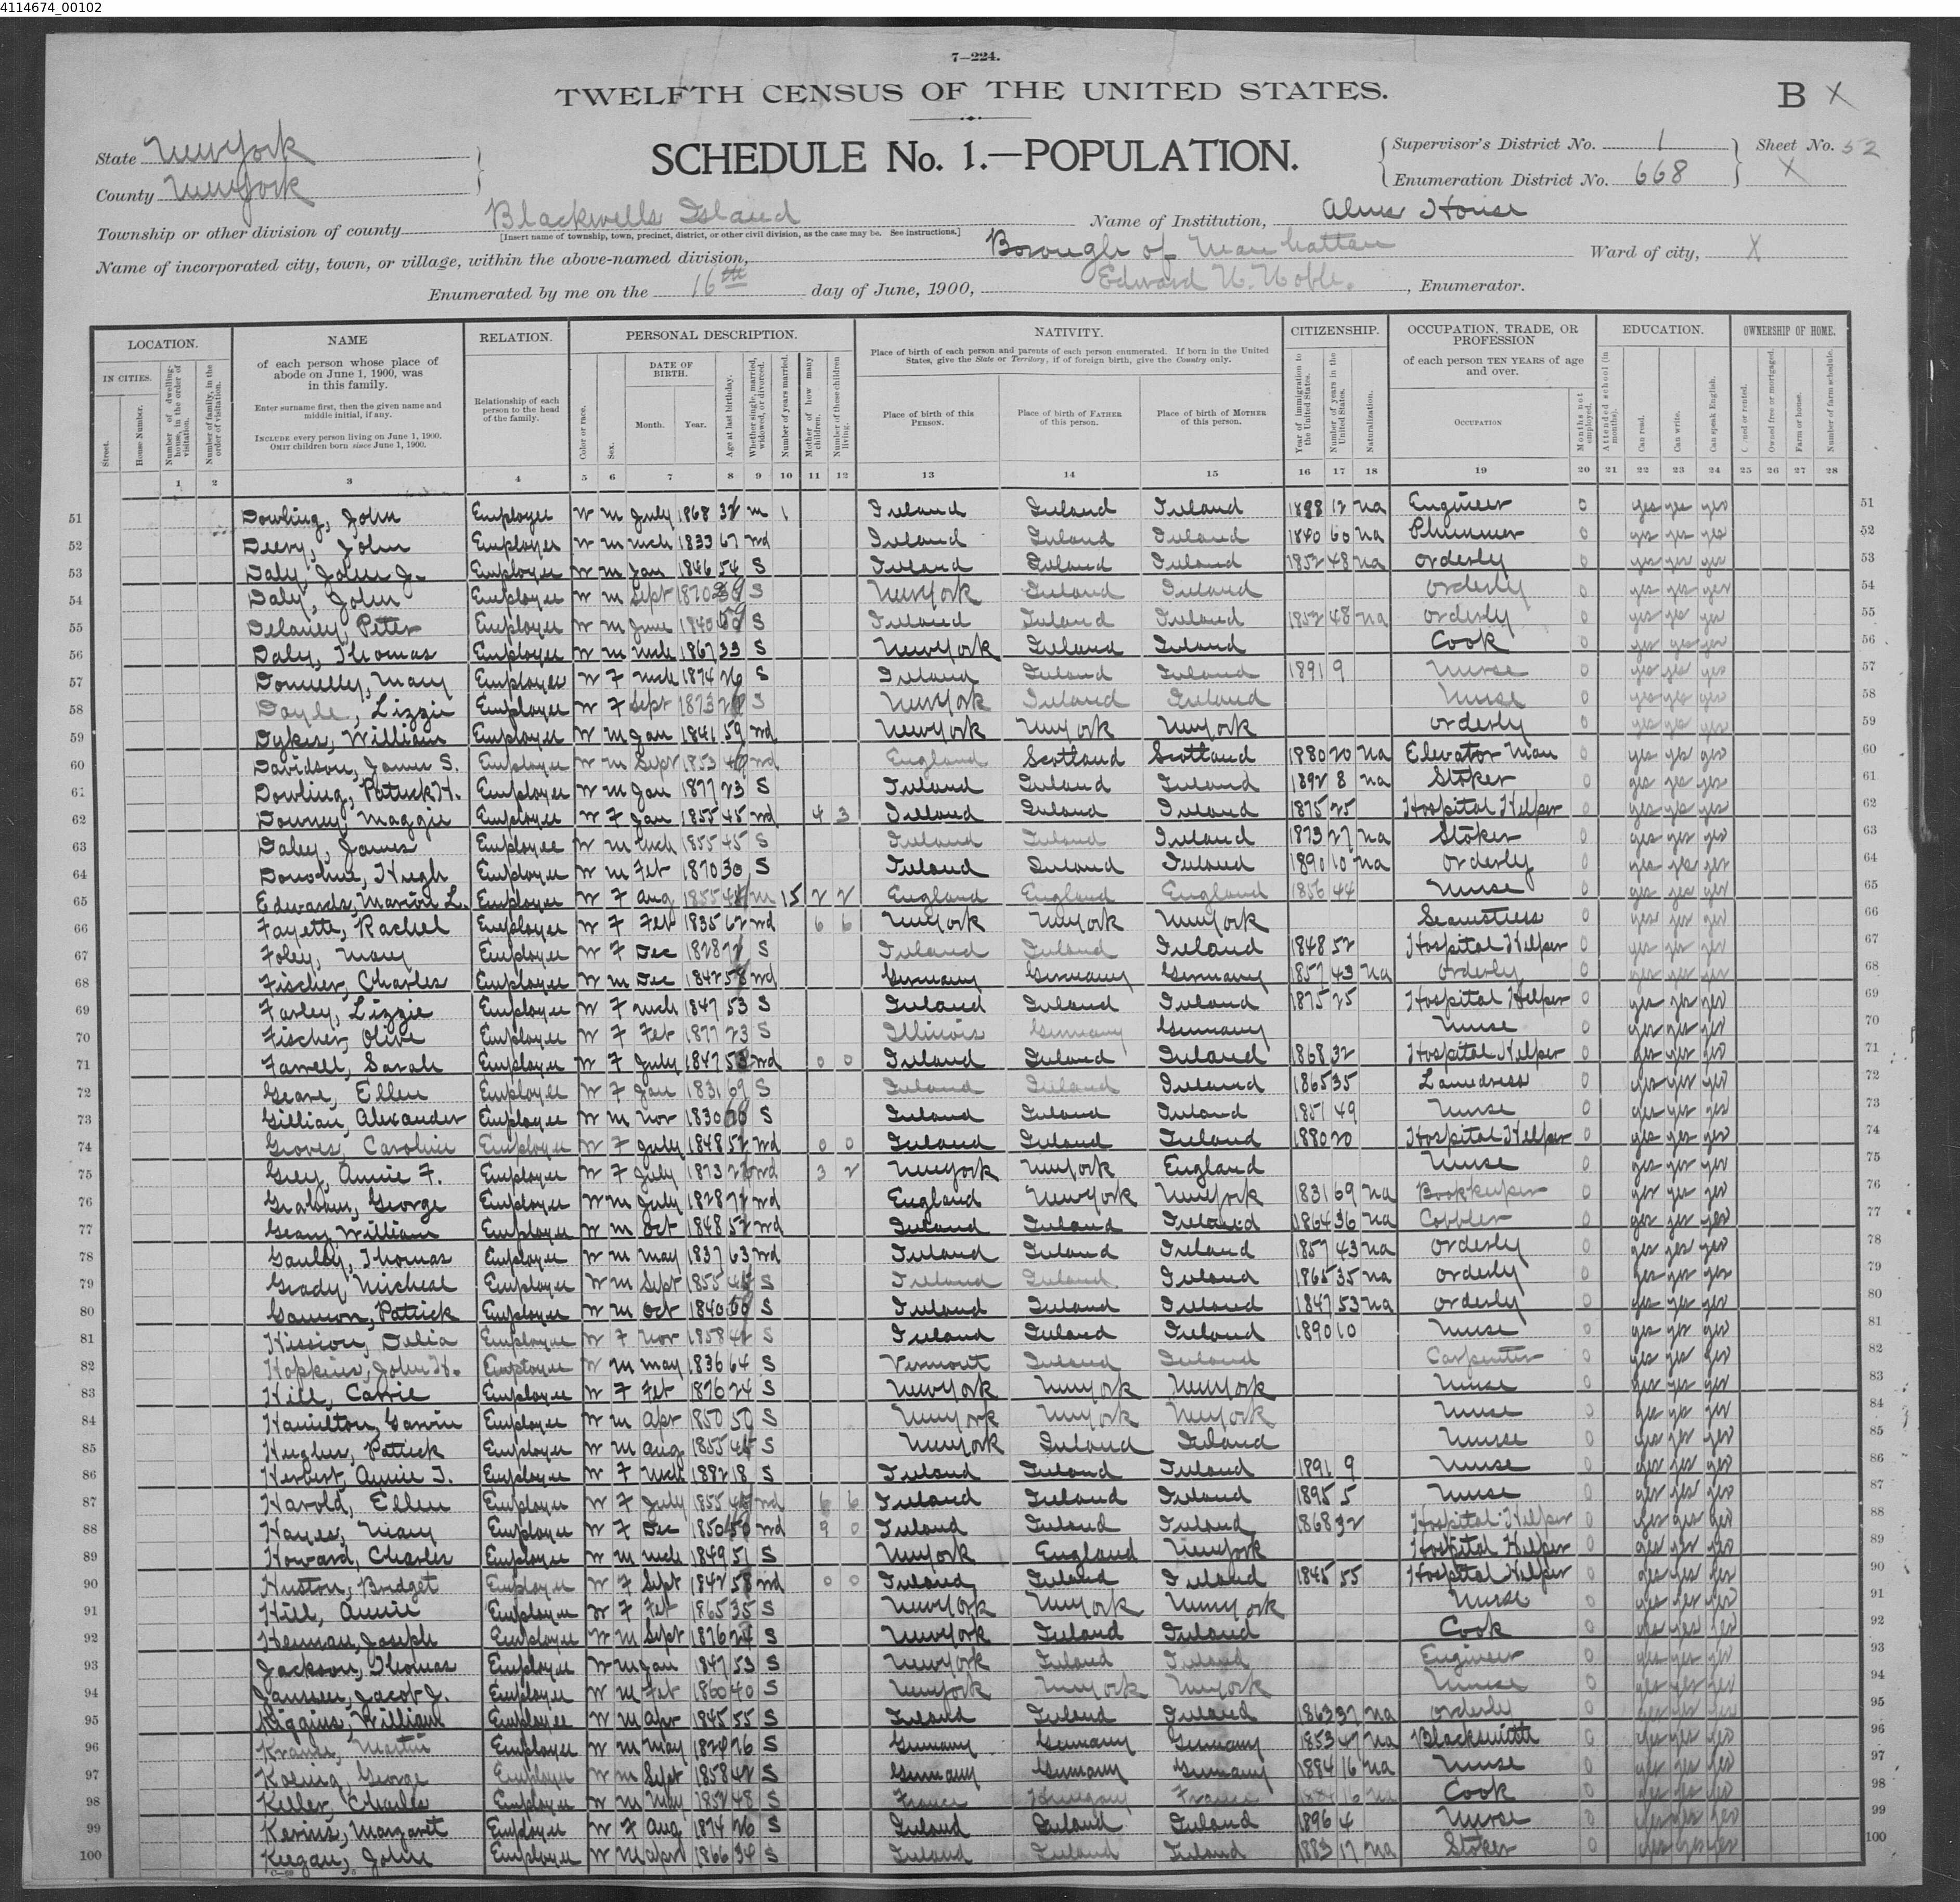 4114674_00102
7—224.
TWELFTH CENSUS OF THE UNITED STATES.
B X
State New York
SCHEDULE No. 1.—POPULATION.
Supervisor's District No. 1 Sheet No. 52
County New York
Enumeration District No. 668 X
Township or other division of county Blackwells Island Name of Institution, Alms House
[Insert name of township, town, precinct, district, or other civil division, as the case may be. See instructions.]
Name of incorporated city, town, or village, within the above-named division, Borough of Manhattan Ward of city, X
Enumerated by me on the 16th day of June, 1900, Edward , Enumerator.
LOCATION. NAME RELATION. PERSONAL DESCRIPTION. NATIVITY. CITIZENSHIP. OCCUPATION, TRADE, OR PROFESSION EDUCATION. OWNERSHIP OF HOME.
IN CITIES. Street. House Number. Number of dwelling-house, in the order of visitation. Number of family, in the order of visitation.
of each person whose place of abode on June 1, 1900, was in this family.
Enter surname first, then the given name and middle initial, if any.
INCLUDE every person living on June 1, 1900. OMIT children born since June 1, 1900.
Relationship of each person to the head of the family.
Color or race. Sex. DATE OF BIRTH. Month. Year. Age at last birthday. Whether single, married, widowed, or divorced. Number of years married. Mother of how many children. Number of these children living.
Place of birth of each person and parents of each person enumerated. If born in the United States, give the State or Territory, if of foreign birth, give the Country only.
Place of birth of this PERSON. Place of birth of FATHER of this person. Place of birth of MOTHER of this person.
Year of immigration to the United States. Number of years in the United States. Naturalization.
of each person TEN YEARS of age and over.
OCCUPATION Months not employed.
Attended school (in months). Can read. Can write. Can speak English.
Owned or rented. Owned free or mortgaged. Farm or house. Number of farm schedule.
1 2 3 4 5 6 7 8 9 10 11 12 13 14 15 16 17 18 19 20 21 22 23 24 25 26 27 28
51 Dowling, John Employee W M July 1868 32 M 1 Ireland Ireland Ireland 1888 12 Na Engineer 0 yes yes yes 51
52 Deery, John Employee W M Mch 1833 67 Wd Ireland Ireland Ireland 1840 60 Na Plummer 0 yes yes yes 52
53 Daly, John J. Employee W M Jan 1846 54 S Ireland Ireland Ireland 1852 48 Na Orderly 0 yes yes yes 53
54 Daly, John Employee W M Sept 1870 S New York Ireland Ireland Orderly 0 yes yes yes 54
55 Delaney, Peter Employee W M June 1840 59 S Ireland Ireland Ireland 1852 48 Na Orderly 0 yes yes yes 55
56 Daly, Thomas Employee W M Mch 1867 33 S New York Ireland Ireland Cook 0 yes yes yes 56
57 Donnelly, Mary Employee W F Mch 1874 26 S Ireland Ireland Ireland 1891 9 Nurse 0 yes yes yes 57
58 Doyle, Lizzie Employee W F Sept 1873 S New York Ireland Ireland Nurse 0 yes yes yes 58
59 Dykes, William Employee W M Jan 1841 59 Wd New York New York New York Orderly 0 yes yes yes 59
60 Davidson, James S. Employee W M Sept 1853 46 Wd England Scotland Scotland 1880 20 Na Elevator Man 0 yes yes yes 60
61 Dowling, Patrick H. Employee W M Jan 1877 23 S Ireland Ireland Ireland 1892 8 Na Stoker 0 yes yes yes 61
62 Downey, Maggie Employee W F Jan 1855 45 Wd 4 3 Ireland Ireland Ireland 1875 25 Hospital Helper 0 yes yes yes 62
63 Daley, James Employee W M Mch 1855 45 S Ireland Ireland Ireland 1873 27 Na Stoker 0 yes yes yes 63
64 Donohue, Hugh Employee W M Feb 1870 30 S Ireland Ireland Ireland 1890 10 Na Orderly 0 yes yes yes 64
65 Edwards, L. Employee W F Aug 1855 44 M 15 2 2 England England England 1856 44 Nurse 0 yes yes yes 65
66 Fayette, Rachel Employee W F Feb 1835 Wd 6 6 New York New York New York Seamstress 0 yes yes yes 66
67 Foley, Mary Employee W F Dec 1828 S Ireland Ireland Ireland 1848 52 Hospital Helper 0 yes yes yes 67
68 Fischer, Charles Employee W M Dec 1842 Wd Germany Germany Germany 1857 43 Na Orderly 0 yes yes yes 68
69 Farley, Lizzie Employee W F Mch 1847 53 S Ireland Ireland Ireland 1875 25 Hospital Helper 0 yes yes yes 69
70 Fischer, Olive Employee W F Feb 1877 23 S Illinois Germany Germany Nurse 0 yes yes yes 70
71 Farrell, Sarah Employee W F July 1847 Wd 0 0 Ireland Ireland Ireland 1868 32 Hospital Helper 0 yes yes yes 71
72 Geare, Ellen Employee W F Jan 1831 69 S Ireland Ireland Ireland 1865 35 Laundress 0 yes yes yes 72
73 Gillian, Alexander Employee W M Nov 1830 S Ireland Ireland Ireland 1851 49 Nurse 0 yes yes yes 73
74 Groves, Caroline Employee W F July 1848 52 Wd 0 0 Ireland Ireland Ireland 1880 20 Hospital Helper 0 yes yes yes 74
75 Grey, Annie F. Employee W F July 1873 Wd 3 2 New York New York England Nurse 0 yes yes yes 75
76 Graham, George Employee W M July 1828 72 Wd England New York New York 1831 69 Na Bookkeeper 0 yes yes yes 76
77 Geary, William Employee W M Oct 1848 52 Wd Ireland Ireland Ireland 1864 36 Na Cobbler 0 yes yes yes 77
78 Gaulby, Thomas Employee W M May 1837 63 Wd Ireland Ireland Ireland 1857 43 Na Orderly 0 yes yes yes 78
79 Grady, Micheal Employee W M Sept 1855 S Ireland Ireland Ireland 1865 35 Na Orderly 0 yes yes yes 79
80 Gannon, Patrick Employee W M Oct 1840 59 S Ireland Ireland Ireland 1847 53 Na Orderly 0 yes yes yes 80
81 Hission, Delia Employee W F Nov 1858 S Ireland Ireland Ireland 1890 10 Nurse 0 yes yes yes 81
82 Hopkins, John H. Employee W M May 1836 64 S Vermont Ireland Ireland Carpenter 0 yes yes yes 82
83 Hill, Carrie Employee W F Feb 1876 24 S New York New York New York Nurse 0 yes yes yes 83
84 Hamilton, Employee W M Apr 1850 50 S New York New York New York Nurse 0 yes yes yes 84
85 Hughes, Patrick Employee W M Aug 1855 S New York Ireland Ireland Nurse 0 yes yes yes 85
86 Herbert, Annie T. Employee W F Mch 1882 18 S Ireland Ireland Ireland 1891 9 Nurse 0 yes yes yes 86
87 Harold, Ellen Employee W F July 1855 45 Wd 6 6 Ireland Ireland Ireland 1895 5 Nurse 0 yes yes yes 87
88 Hayes, Mary Employee W F Dec 1850 Wd 9 0 Ireland Ireland Ireland 1868 32 Hospital Helper 0 yes yes yes 88
89 Howard, Charles Employee W M Mch 1849 51 S New York England New York Hospital Helper 0 yes yes yes 89
90 Huston, Bridget Employee W F Sept 1842 58 Wd 0 0 Ireland Ireland Ireland 1845 55 Hospital Helper 0 yes yes yes 90
91 Hill, Annie Employee W F Feb 1865 35 S New York New York New York Nurse 0 yes yes yes 91
92 Joseph Employee W M Sept 1876 24 S New York Ireland Ireland Cook 0 yes yes yes 92
93 Jackson, Thomas Employee W M Jan 1847 53 S New York Ireland Ireland Engineer 0 yes yes yes 93
94 Janssen, Jacob J. Employee W M Feb 1860 40 S New York New York New York Nurse 0 yes yes yes 94
95 Kiggins, William Employee W M Apr 1845 55 S Ireland Ireland Ireland 1863 37 Na Orderly 0 yes yes yes 95
96 Martin Employee W M May 1824 76 S Germany Germany Germany 1853 47 Na Blacksmith 0 yes yes yes 96
97 Koenig, George Employee W M Sept 1858 42 S Germany Germany Germany 1884 16 Na Nurse 0 yes yes yes 97
98 Keller, Charles Employee W M May 1852 48 S France France 1884 16 Na Cook 0 yes yes yes 98
99 Kerins, Margaret Employee W F Aug 1874 26 S Ireland Ireland Ireland 1896 4 Nurse 0 yes yes yes 99
100 Keegan, John Employee W M Apr 1866 34 S Ireland Ireland Ireland 1883 17 Na Stoker 0 yes yes yes 100